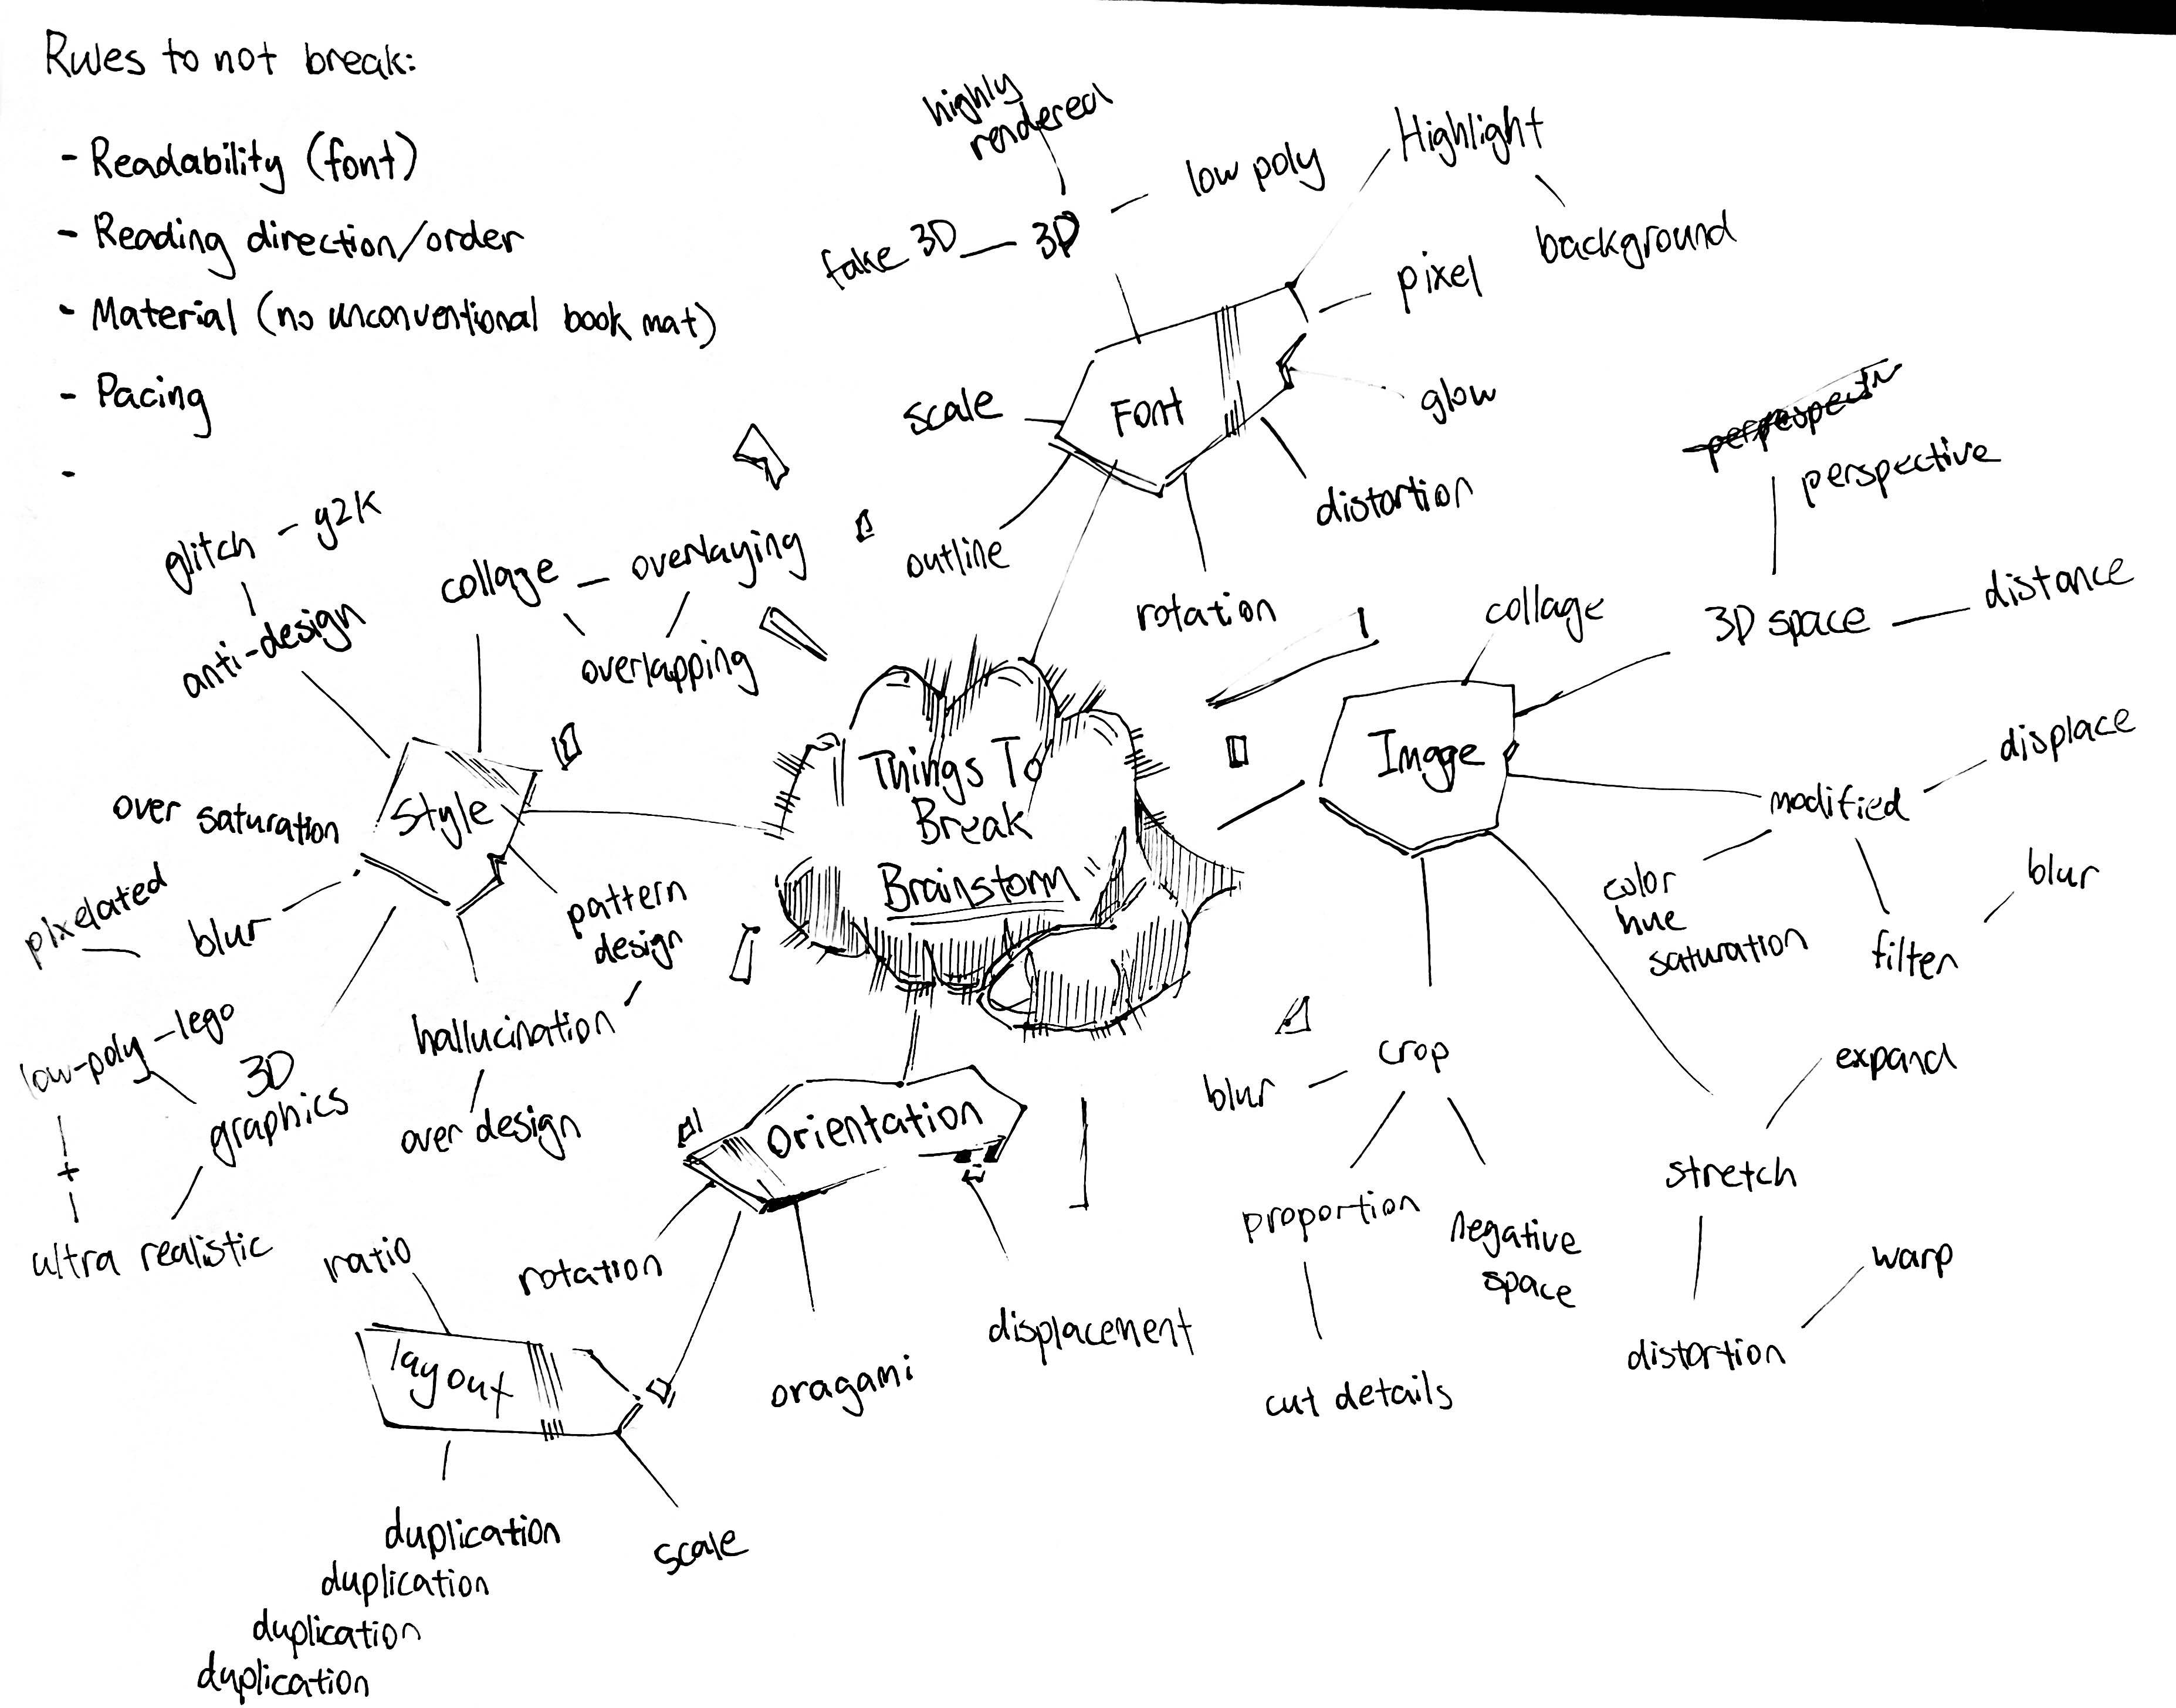 Rules to not break:
- Readability (font)
- Reading direction/order
- Material (no unconventional book mat)
- Pacing
-
highly
rendered
low poly
fake 3D
3D
Highlight
background
pixel
glow
scale
Font
distortion
outline
rotation
perspective
glitch - y2K
anti-design
collage
overlaying
overlapping
Style
over saturation
pixelated
blur
pattern
design
hallucination
over design
low-poly-lego
3D
graphics
+
ultra realistic
Things To
Break
Brainstorm
collage
3D space
distance
Image
modified
displace
color
hue
saturation
filter
blur
crop
blur
proportion
negative
space
cut details
expand
stretch
distortion
warp
Orientation
rotation
oragami
displacement
ratio
layout
scale
duplication
duplication
duplication
duplication